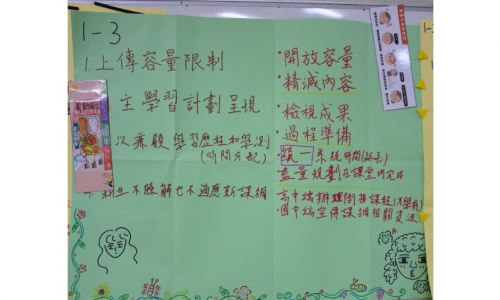 1-3
1.上傳容量限制
主學習計劃呈現
以兼顧學習歷程和學測
(時間分配)
不瞭解也不適應新課綱
·開放容量
·精減內容
·檢視成果
·過程準備
·統一系統時間(延長)
·盡量規劃在課堂內完成
高中端辦理銜接課程
國中端宣傳課綱相關資訊